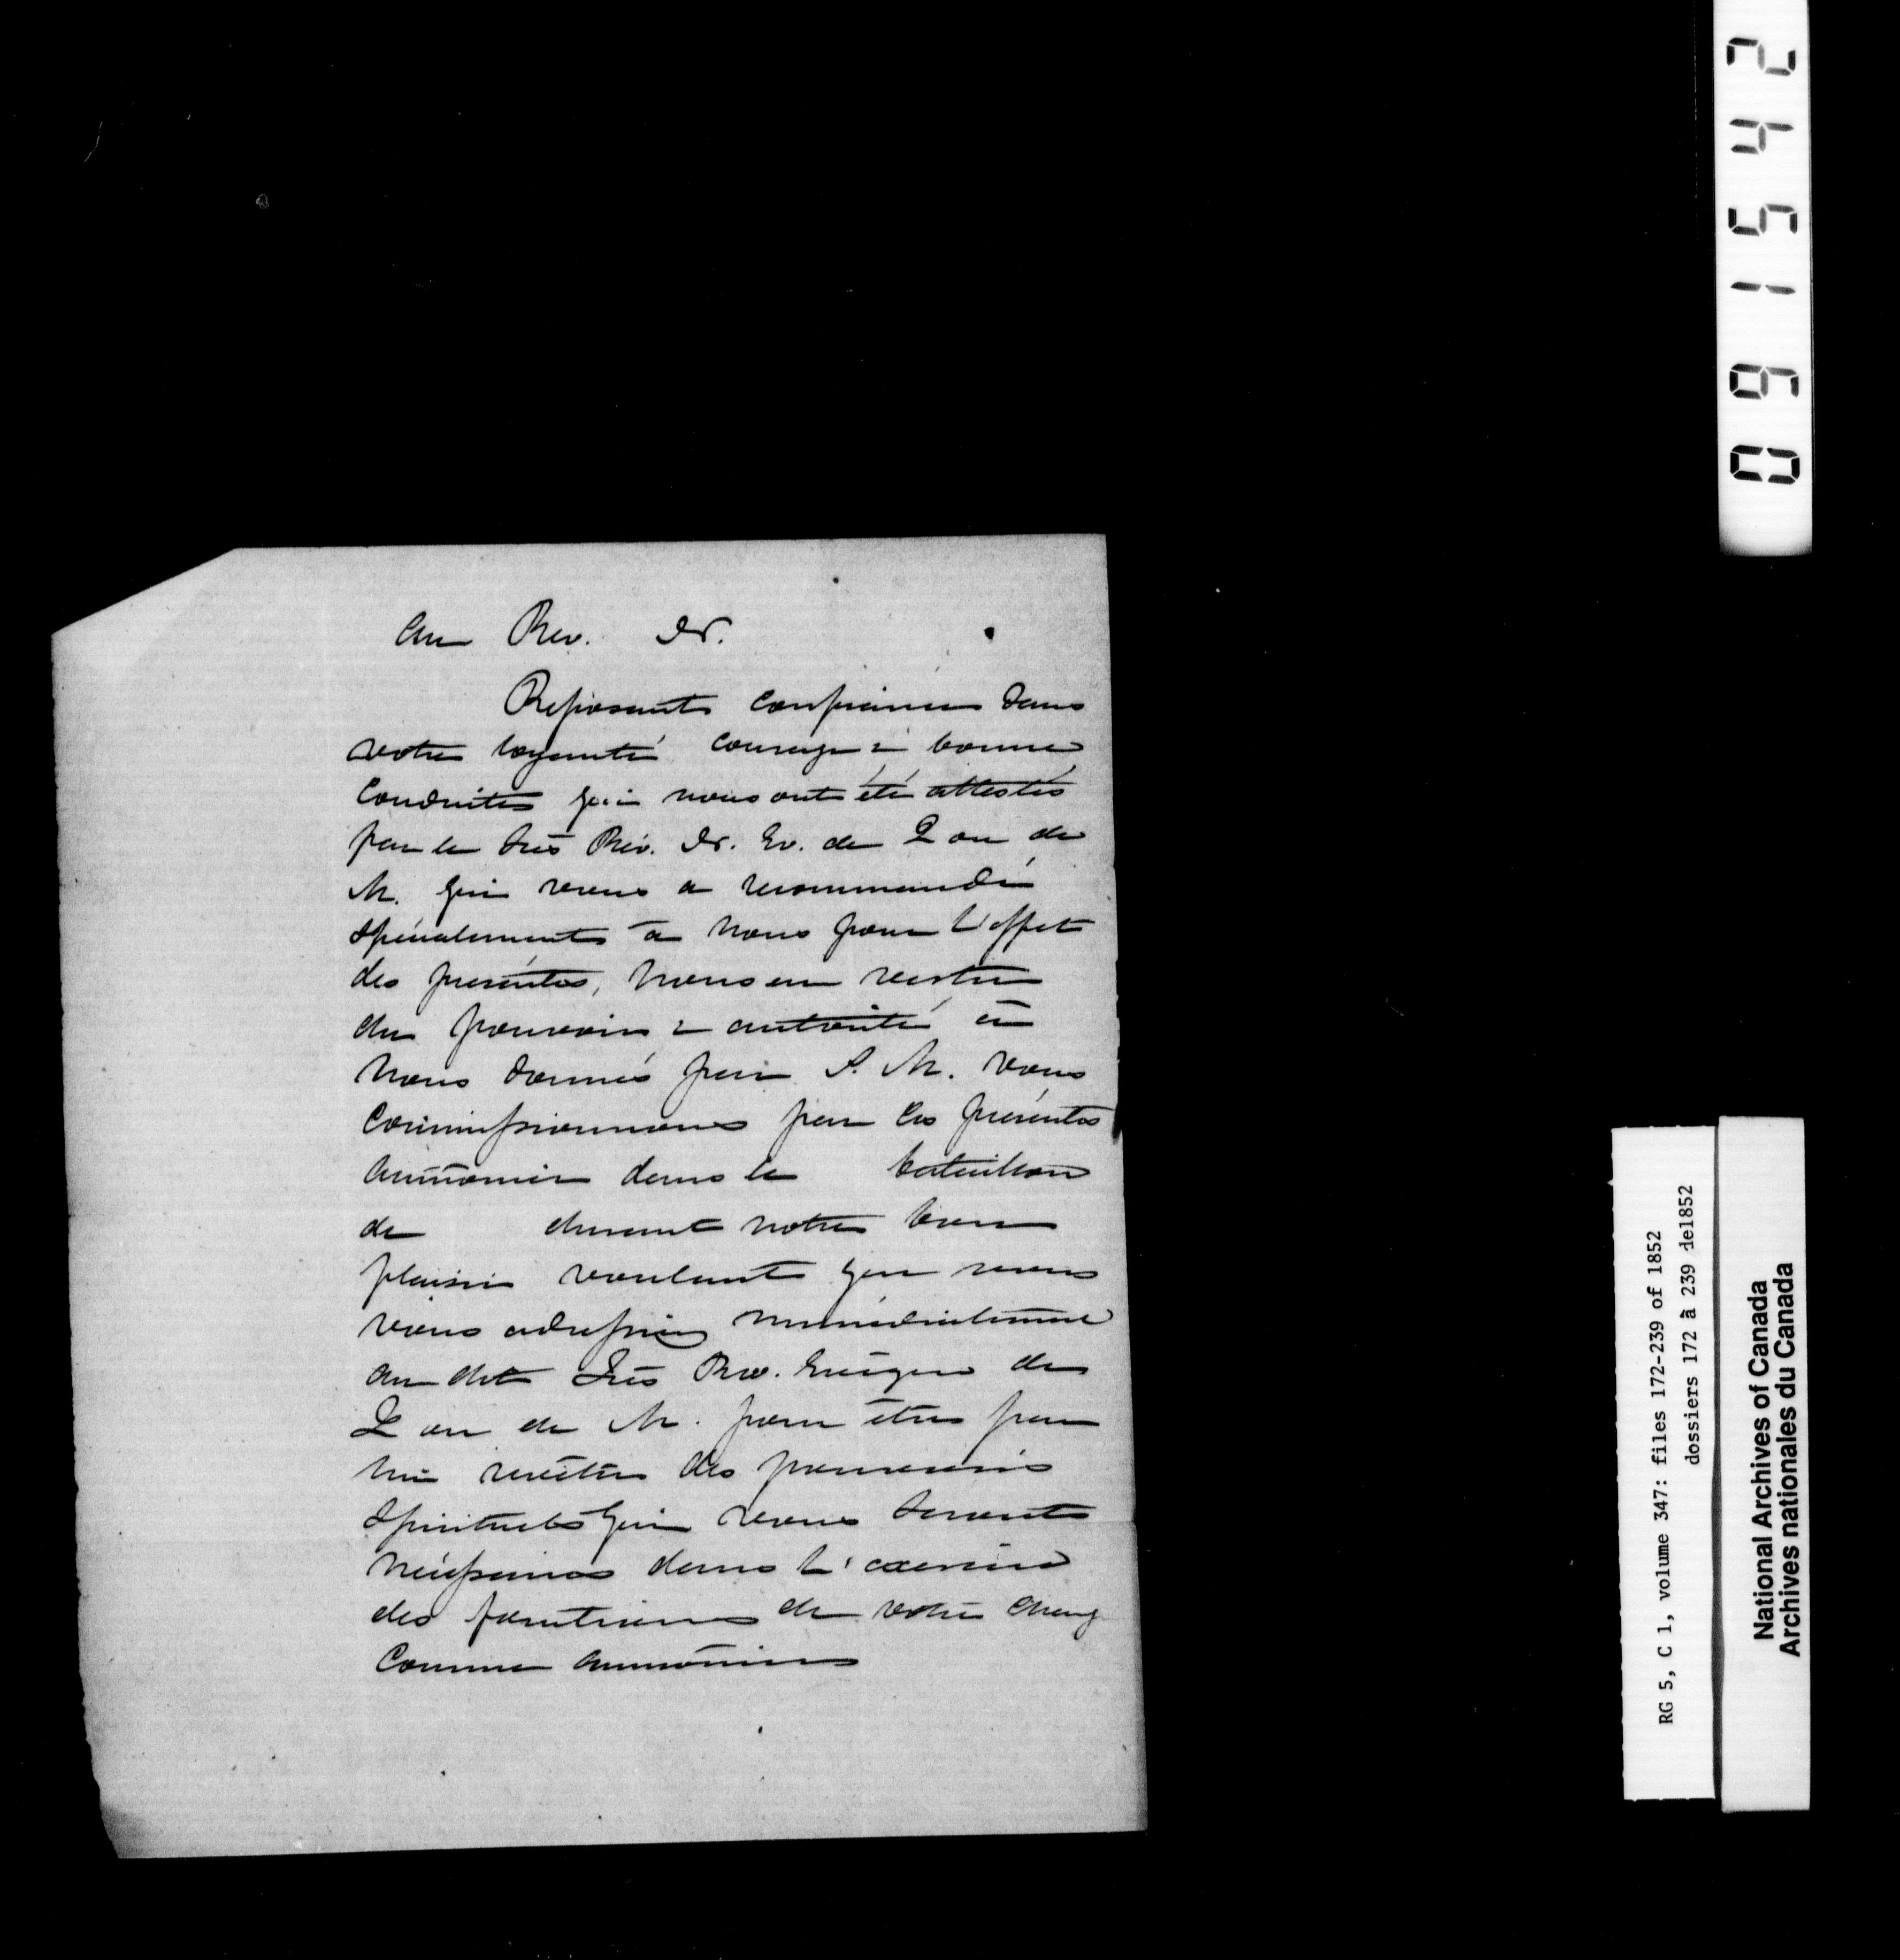 Au Rev. Dr.
Reposant confiance dans
votre loyauté courage & bonne
conduite qui nous ont été attestés
par le très Rév. Dr. Ev. de Q ou de
M. qui vous a recommandé
spécialement à nous pour l'effet
des présentes, nous en vertu
du pouvoir & autorité à
nous donnés par S. M. vous
commissionnons par les présentes
aumônier dans le bataillon
de durant notre bon
plaisir voulant que vous
vous adressiez immédiatement
au dit Très Rev. Evêque de
Q ou de M. pour être par
lui revêtu des pouvoirs
spirituels qui vous seront
nécessaires dans l'exercice
des fonctions de votre charge
comme aumônier
091542
RG 5, C 1, volume 347: files 172-239 of 1852
dossiers 172 à 239 de1852
National Archives of Canada
Archives nationales du Canada